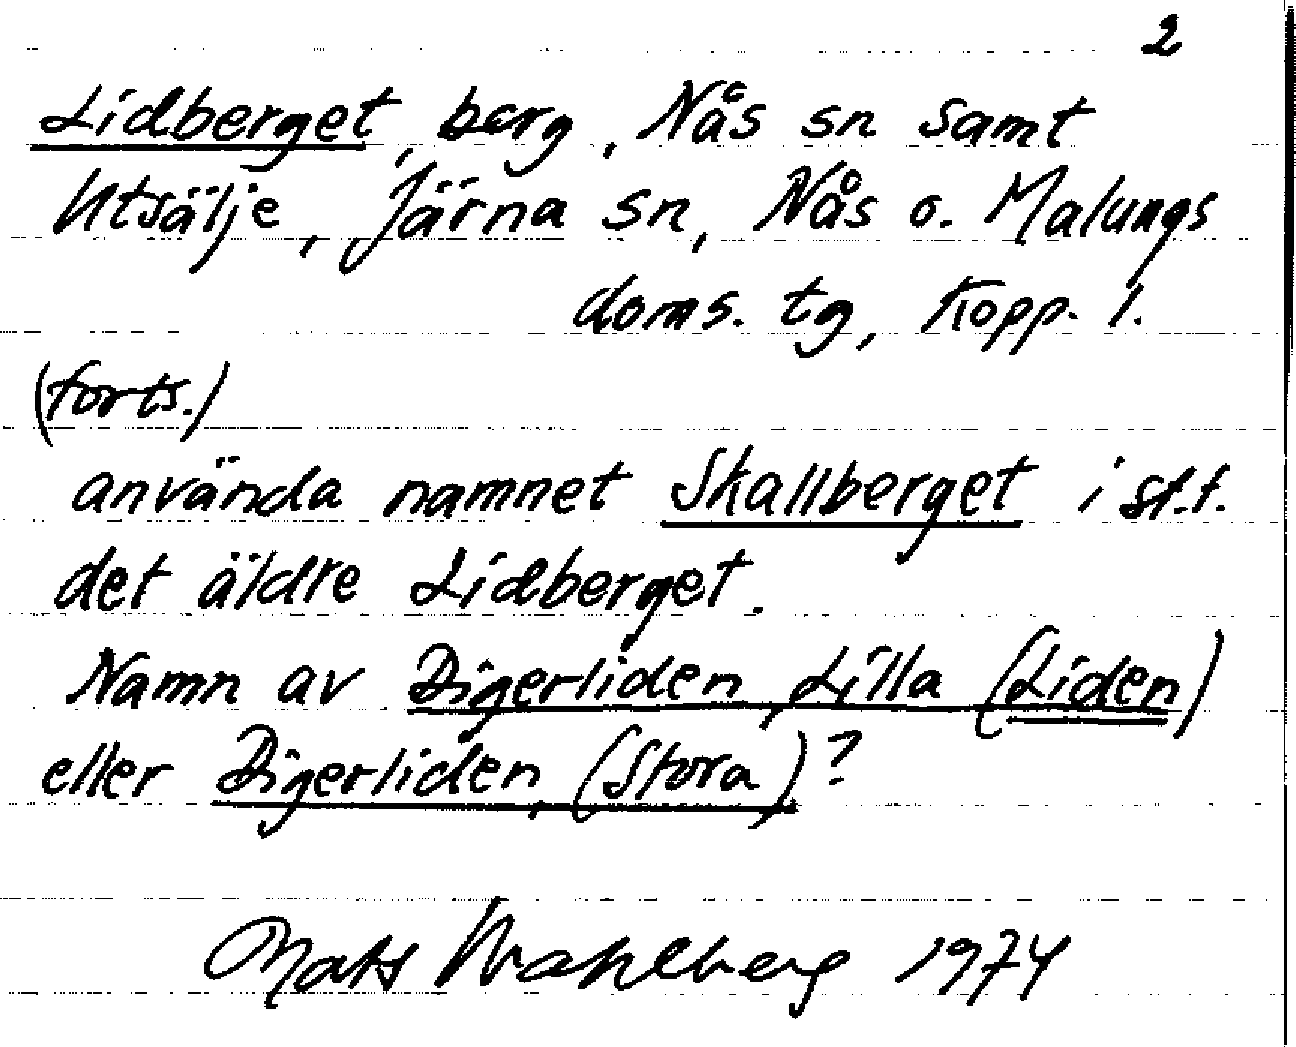 2
Lidberget, berg, Nås sn samt
Utsälje, Järna sn, Nås o. Malungs
doms. tg, Kopp. l.
(forts.)
använda namnet Skallberget i st.f.
det äldre Lidberget.
Namn av Digerliden, Lilla (Liden)
eller Digerliden, (Stora)?
Mats Wahlberg 1974